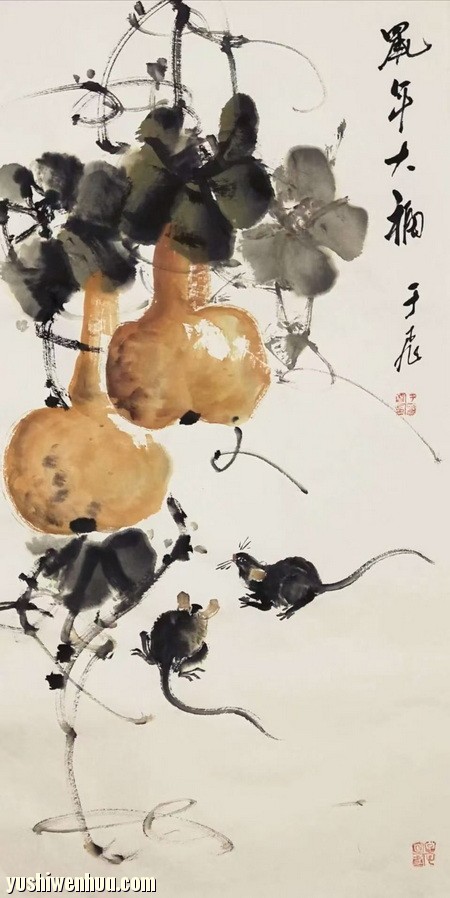 鼠年大福
于飛
yushiwenhun.com